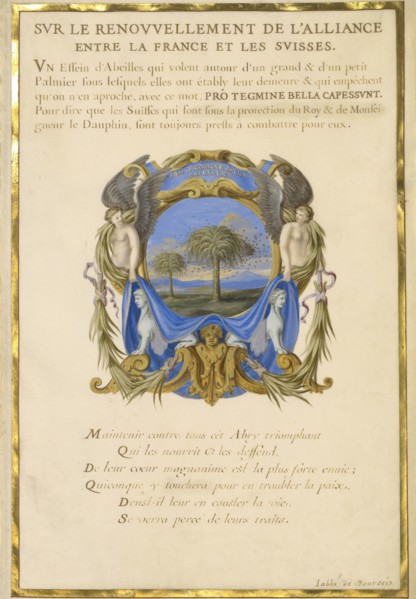 SVR LE RENOVVELLEMENT DE L'ALLIANCE
ENTRE LA FRANCE ET LES SVISSES.
VN Essein d'Abeilles qui volent autour d'un grand & d'un petit
Palmier sous lesquels elles ont étably leur demeure & qui empéchent
qu'on n'en aproche, avec ce mot, PRÒ TEGMINE BELLA CAPESSVNT.
Pour dire que les Suisses qui sont sous la protection du Roy & de Monsei-
gneur le Dauphin, sont toujours prests a combattre pour eux.
Maintenir contre tous cét Abry triomphant
Qui les nourrit & les deffend,
De leur cœur magnanime est la plus forte envie;
Quiconque y touchera pour en troubler la paix,
Deust-il leur en couster la vie,
Se verra percé de leurs traits.